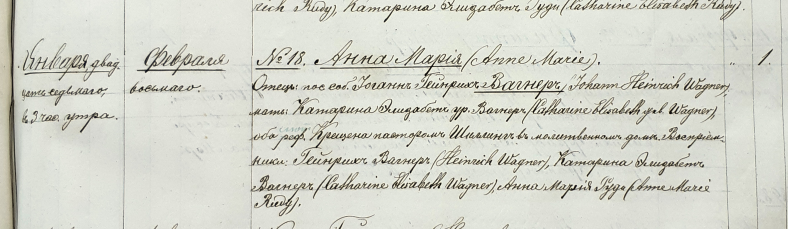 rich Rudy), Катарина Элизабетъ Руди (Catharine Elisabeth Rudy).
Января двад-
цать седьмаго,
въ 3 час. утра.
Февраля
восьмаго.
№ 18. Анна Марія (Anne Marie).
Отецъ: пос. соб. Іоганнъ Гейнрихъ Вагнеръ (Johann Heinrich Wagner)
мать: Катарина Элизабетъ ур. Вагнеръ (Catharine Elisabeth g. Wagner),
оба реф. Крещена пасторомъ въ молитвенномъ домѣ. Воспріем-
ники: Гейнрихъ Вагнеръ (Heinrich Wagner), Катарина Элизабетъ
Вагнеръ (Catharine Elisabeth Wagner), Анна Марія Руди (Anne Marie
Rudy).
1.